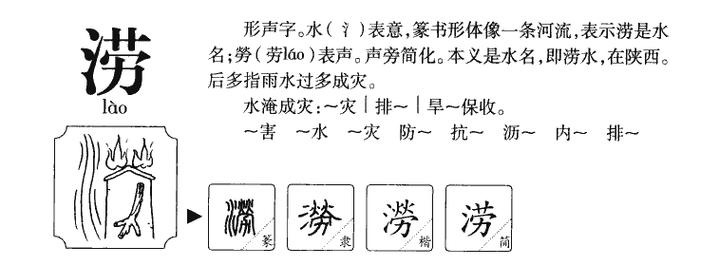 涝
lào
形声字。水(氵)表意,篆书形体像一条河流,表示涝是水
名;勞(劳láo)表声。声旁简化。本义是水名,即涝水,在陕西。
后多指雨水过多成灾。
水淹成灾:～灾｜排～｜旱～保收。
～害 ～水 ～灾 防～ 抗～ 沥～ 内～ 排～
澇 篆 澇 隶 澇 楷 涝 简